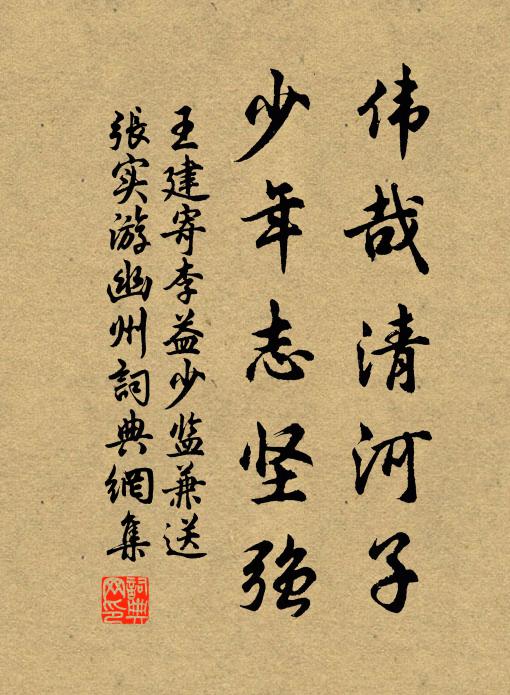 伟哉清河子
少年志坚强
王建寄李益少监兼送
張实游幽州詞典網集
詞典网印